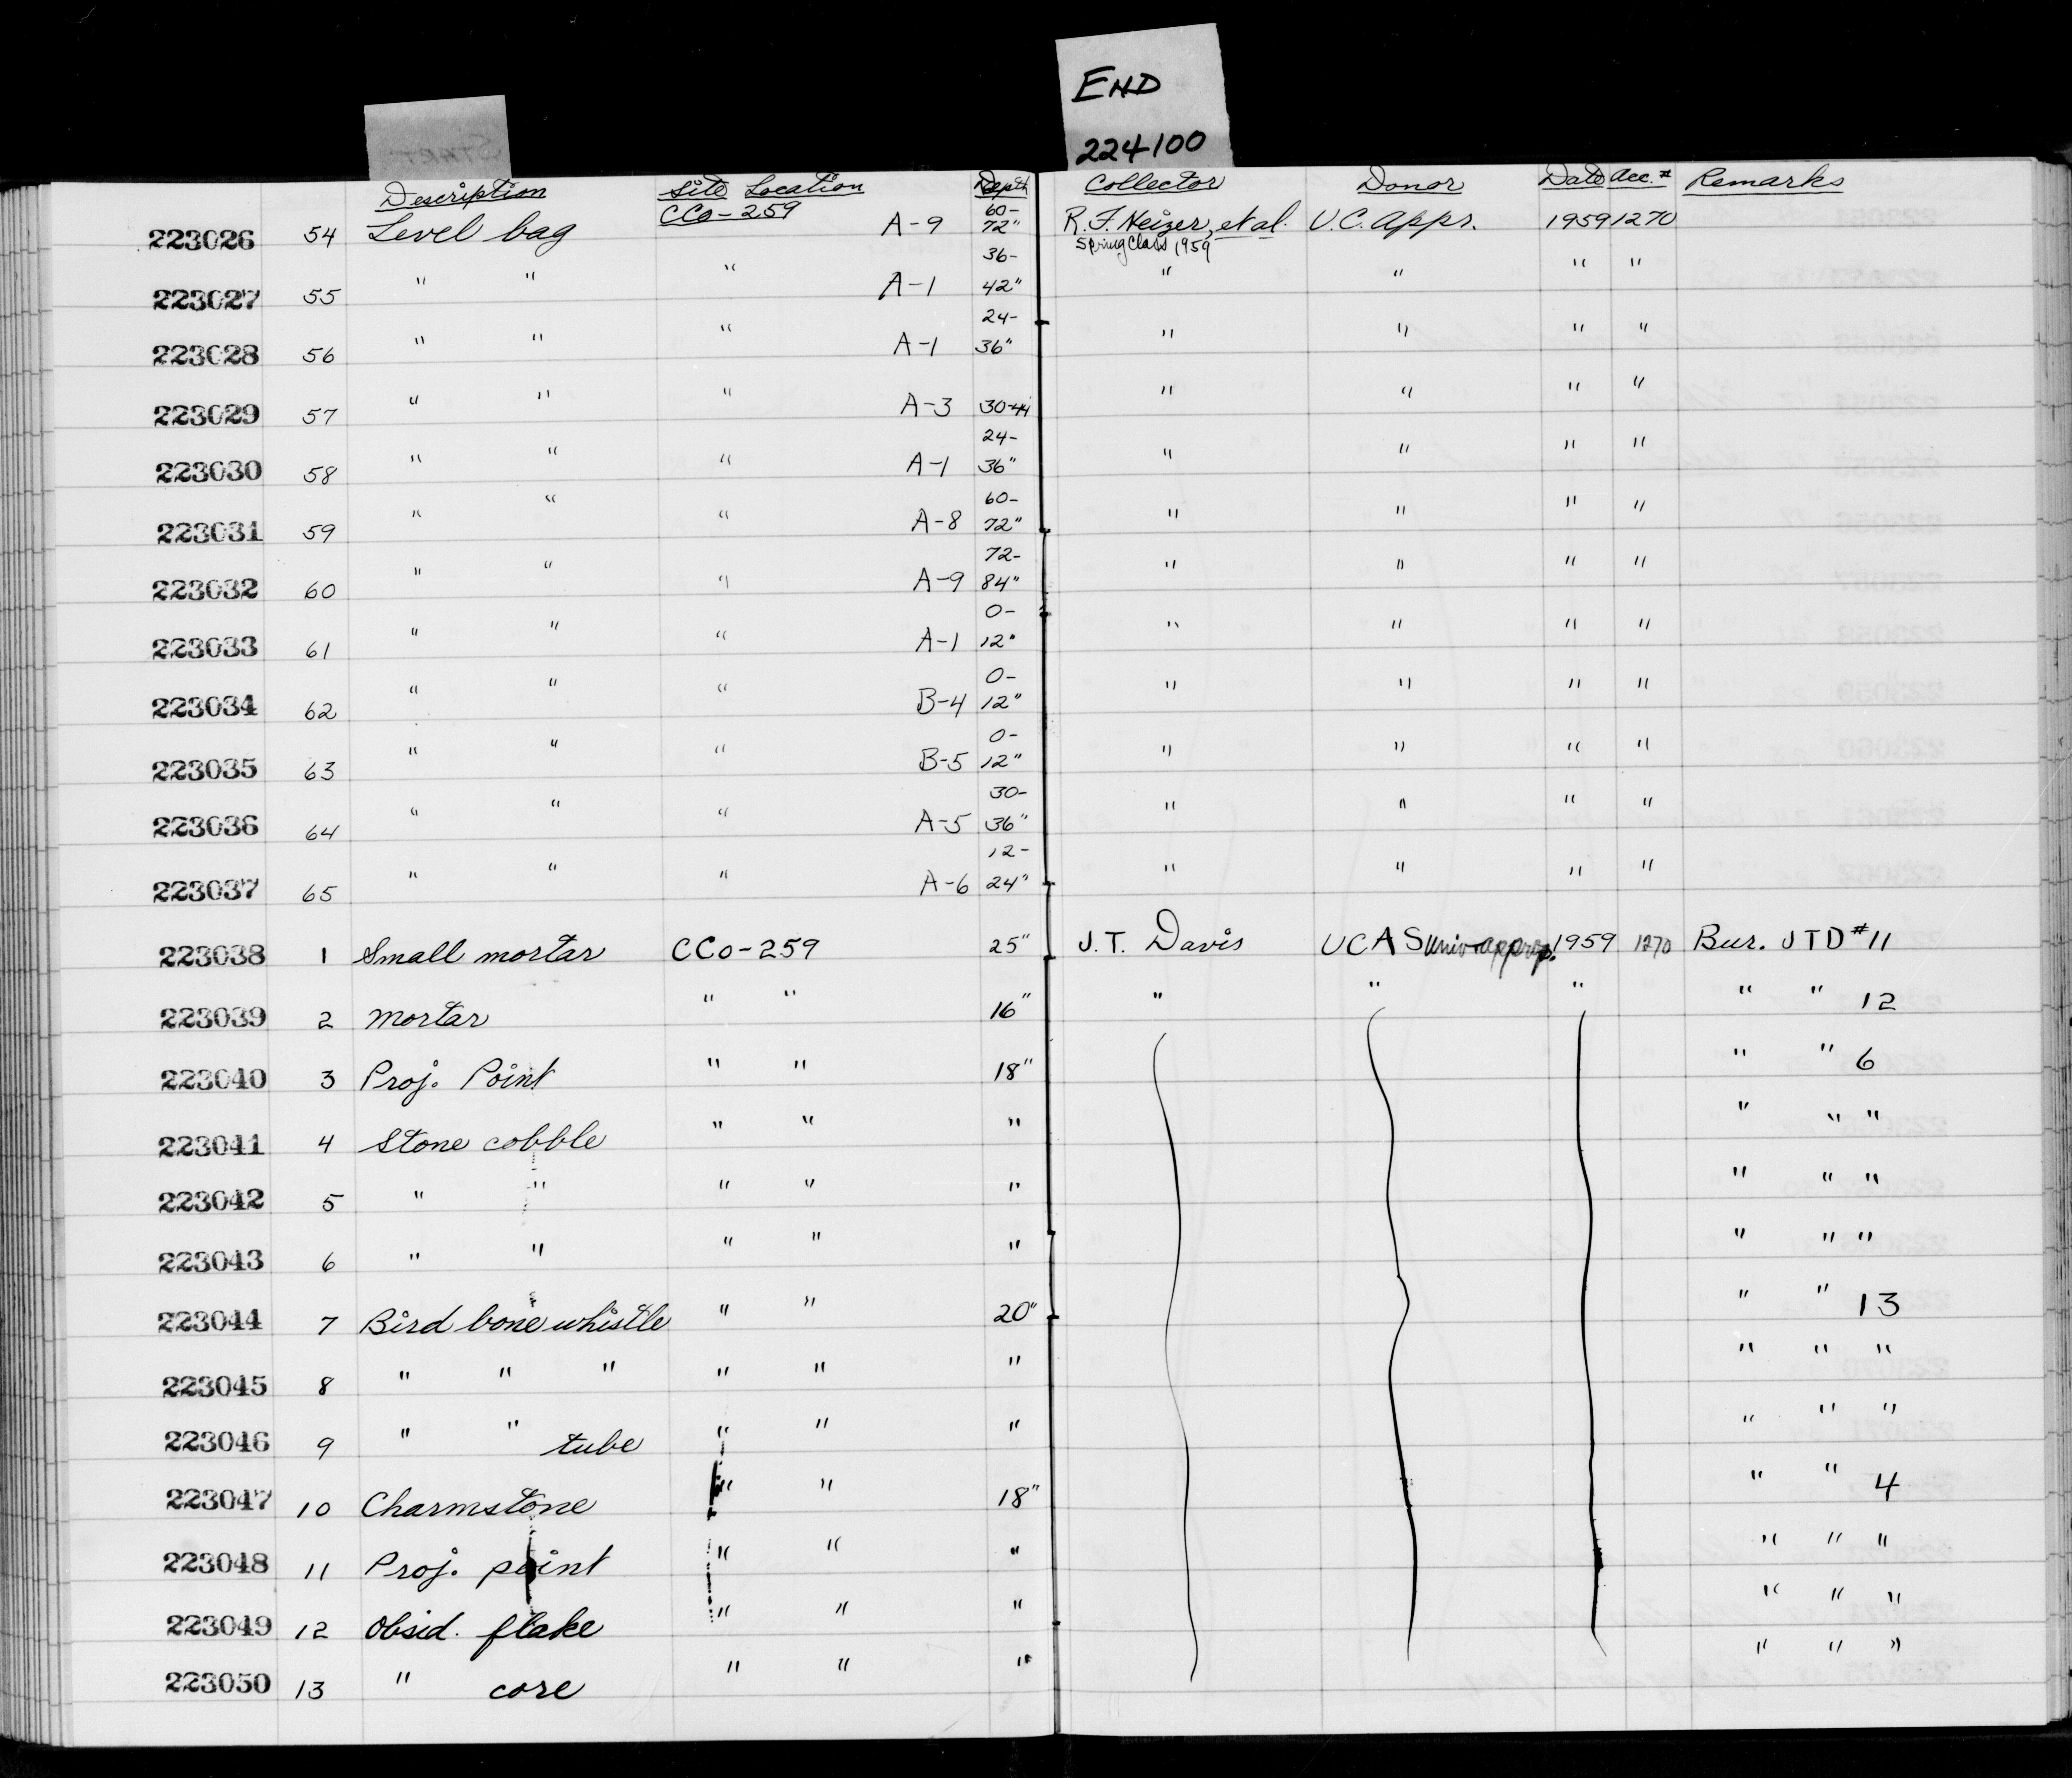 END
224100
START
Description Site Location Depth Collector Donor Date Acc.# Remarks
223026 54 Level bag CCo-259 A-9 60-72" R.F. Heizer, et al. Spring Class 1959 U.C. Appr. 1959 1270
223027 55 " " " A-1 36-42" " " " "
223028 56 " " " A-1 24-36" " " " "
223029 57 " " " A-3 30-44 " " " "
223030 58 " " " A-1 24-36" " " " "
223031 59 " " " A-8 60-72" " " " "
223032 60 " " " A-9 72-84" " " " "
223033 61 " " " A-1 0-12" " " " "
223034 62 " " " B-4 0-12" " " " "
223035 63 " " " B-5 0-12" " " " "
223036 64 " " " A-5 30-36" " " " "
223037 65 " " " A-6 12-24" " " " "
223038 1 Small mortar CCo-259 25" J.T. Davis UCAS Univ. approp. 1959 1270 Bur. JTD #11
223039 2 Mortar " " 16" " " " " " 12
223040 3 Proj. Point " " 18" " " 6
223041 4 Stone cobble " " " " " "
223042 5 " " " " " " " "
223043 6 " " " " " " " "
223044 7 Bird bone whistle " " 20" " " 13
223045 8 " " " " " " " " "
223046 9 " " tube " " " " " "
223047 10 Charmstone " " 18" " " 4
223048 11 Proj. point " " " " " "
223049 12 Obsid. flake " " " " " "
223050 13 " core " " " " " "